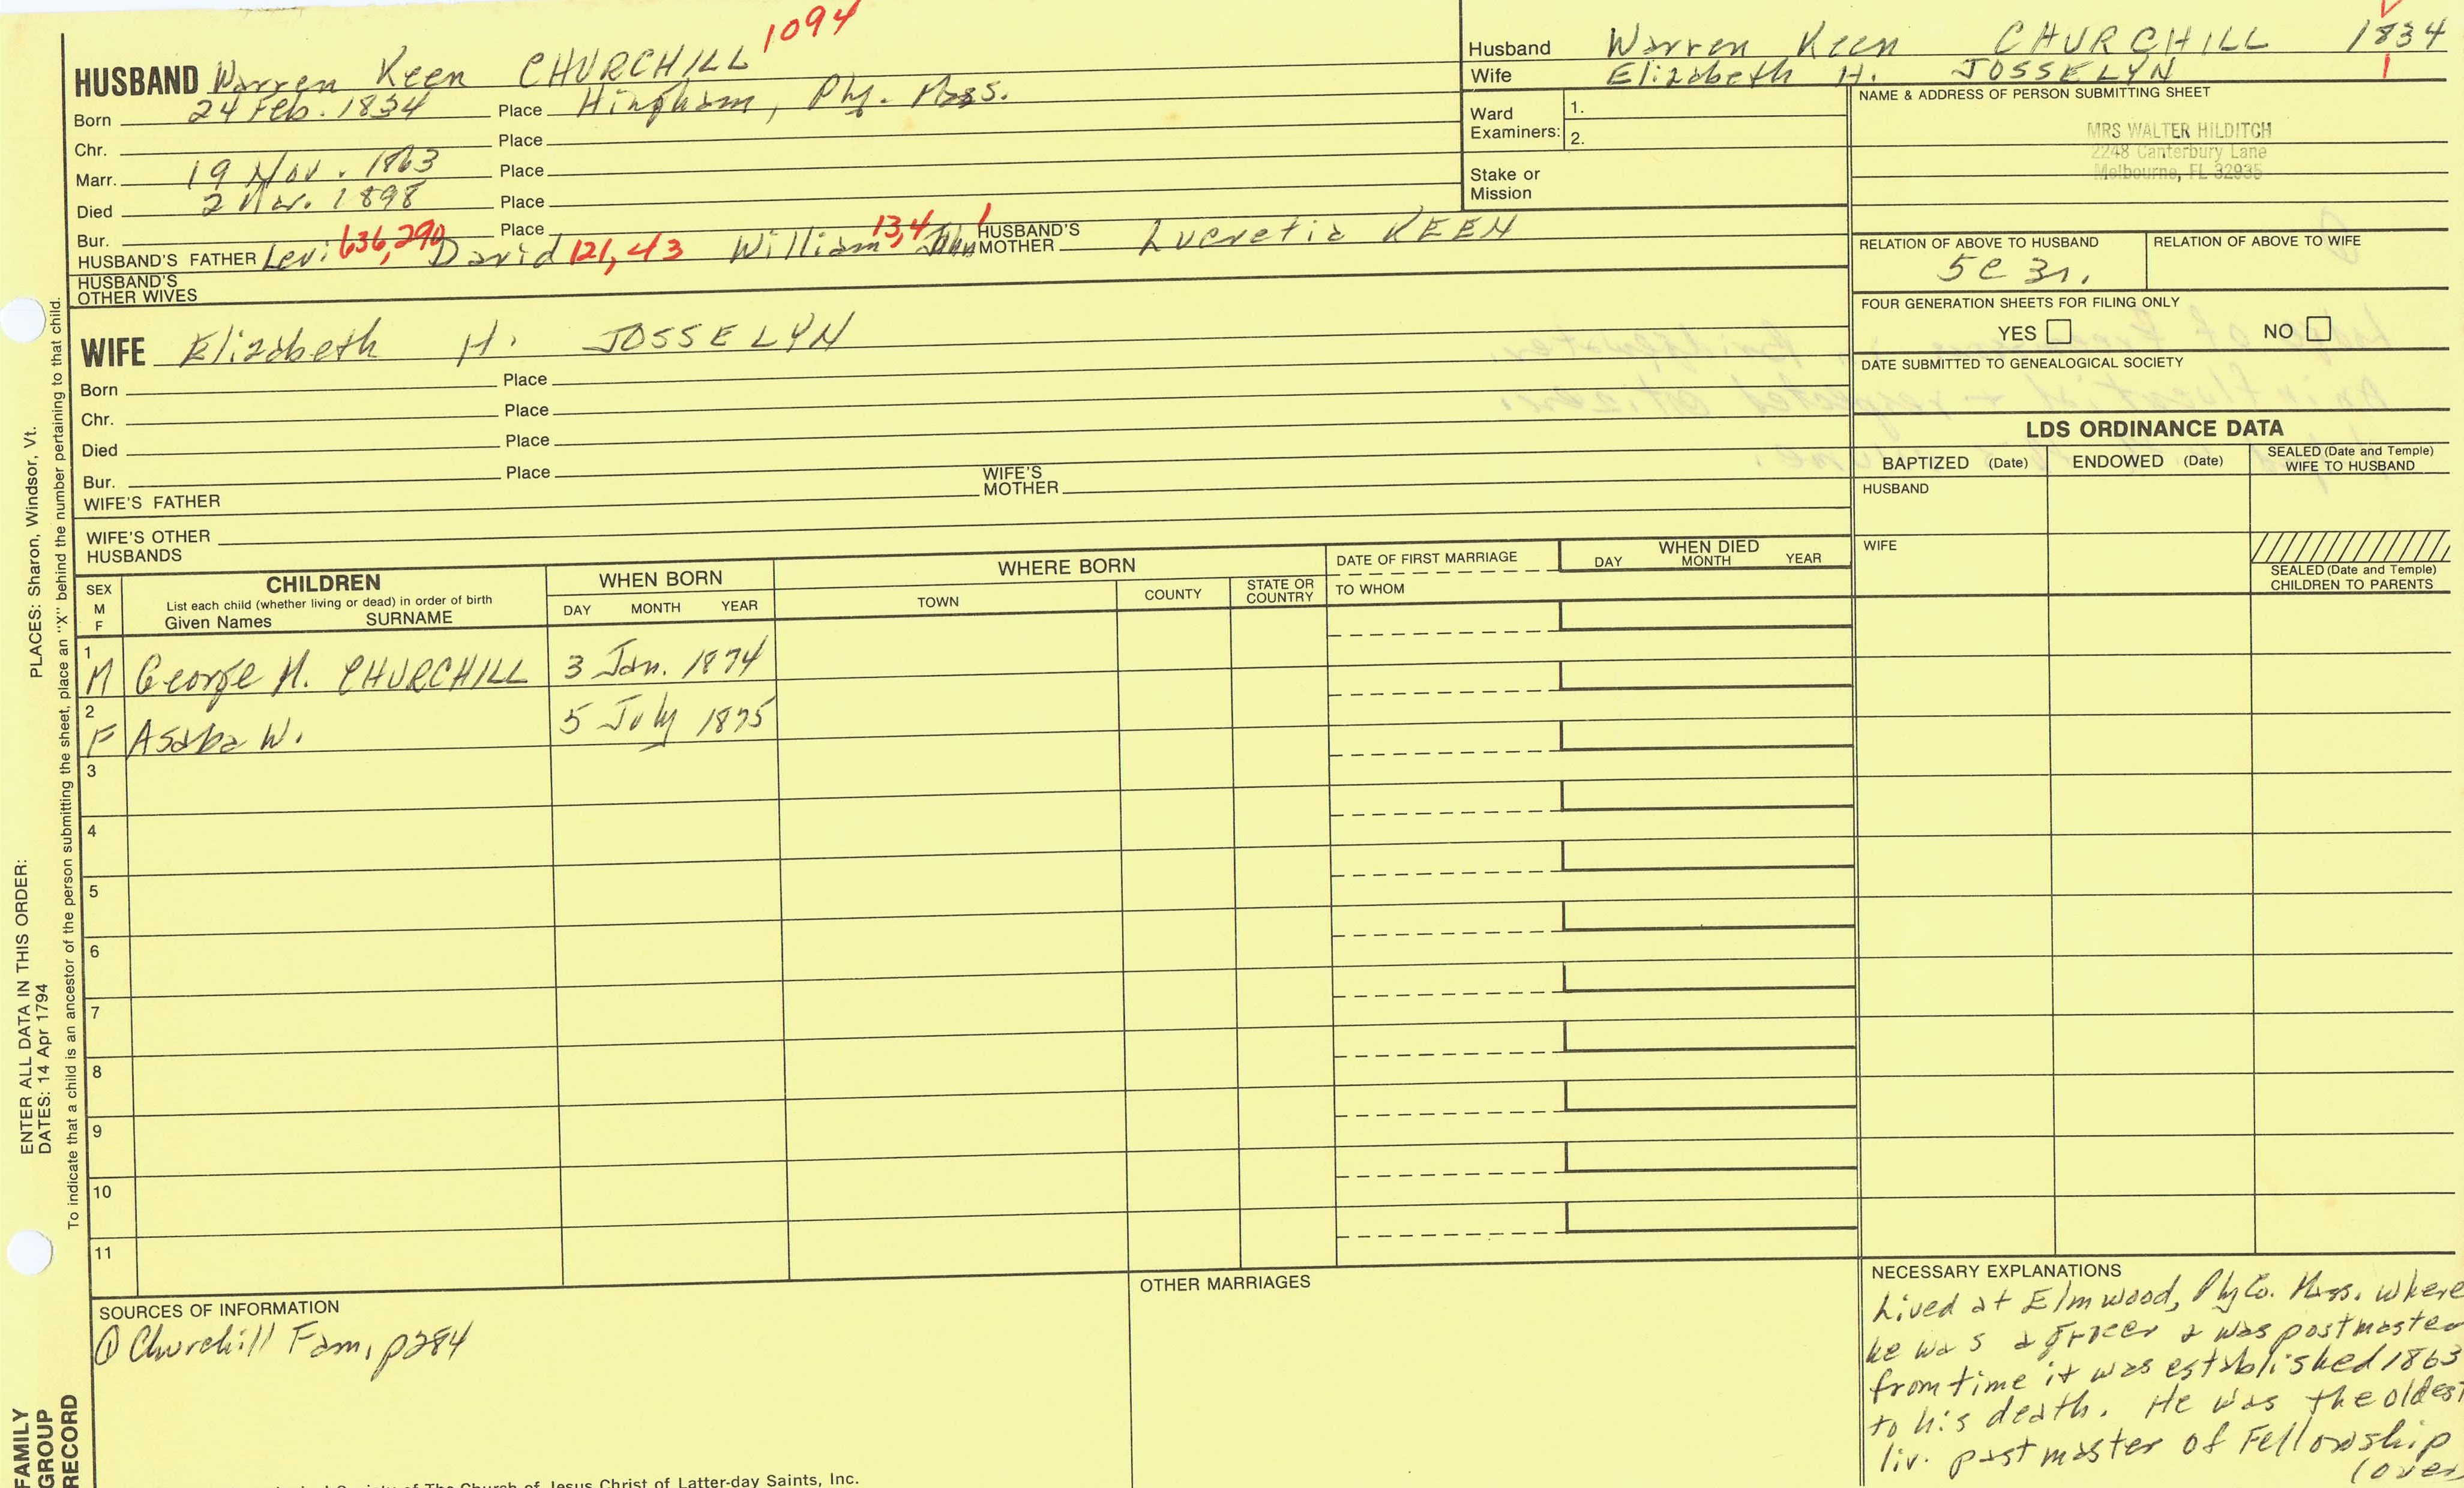 1094
HUSBAND Warren Keen CHURCHILL
Born 24 Feb. 1834 Place Hingham, Ply. Mass.
Chr. Place
Marr. 19 Nov. 1863 Place
Died 2 Mar. 1898 Place
Bur. Place
HUSBAND'S FATHER Levi 636,290 David 121,43 William 13,4 John 1 HUSBAND'S MOTHER Lucretia KEEN
HUSBAND'S OTHER WIVES
WIFE Elizabeth H. JOSSELYN
Born Place
Chr. Place
Died Place
Bur. Place
WIFE'S FATHER WIFE'S MOTHER
WIFE'S OTHER HUSBANDS
Husband Warren Keen CHURCHILL 1834
Wife Elizabeth H. JOSSELYN 1
Ward Examiners: 1.
2.
Stake or Mission
NAME & ADDRESS OF PERSON SUBMITTING SHEET
MRS WALTER HILDITCH
2248 Canterbury Lane
Melbourne, FL 32935
RELATION OF ABOVE TO HUSBAND RELATION OF ABOVE TO WIFE
5C 3r.
FOUR GENERATION SHEETS FOR FILING ONLY
YES NO
DATE SUBMITTED TO GENEALOGICAL SOCIETY
LDS ORDINANCE DATA
BAPTIZED (Date) ENDOWED (Date) SEALED (Date and Temple) WIFE TO HUSBAND
HUSBAND
WIFE
SEALED (Date and Temple) CHILDREN TO PARENTS
SEX M F
CHILDREN
List each child (whether living or dead) in order of birth
Given Names SURNAME
WHEN BORN
DAY MONTH YEAR
WHERE BORN
TOWN COUNTY STATE OR COUNTRY
DATE OF FIRST MARRIAGE
TO WHOM
WHEN DIED
DAY MONTH YEAR
1 M George M. CHURCHILL 3 Jan. 1874
2 F Asaba W. 5 July 1875
3
4
5
6
7
8
9
10
11
SOURCES OF INFORMATION
① Churchill Fam, p284
OTHER MARRIAGES
NECESSARY EXPLANATIONS
Lived at Elmwood, Ply Co. Mass. where
he was a grocer & was postmaster
from time it was established 1863
to his death. He was the oldest
liv. past master of Fellowship
(over
PLACES: Sharon, Windsor, Vt.
ENTER ALL DATA IN THIS ORDER:
DATES: 14 Apr 1794
To indicate that a child is an ancestor of the person submitting the sheet, place an "X" behind the number pertaining to that child.
FAMILY
GROUP
RECORD
Society of The Church of Jesus Christ of Latter-day Saints, Inc.